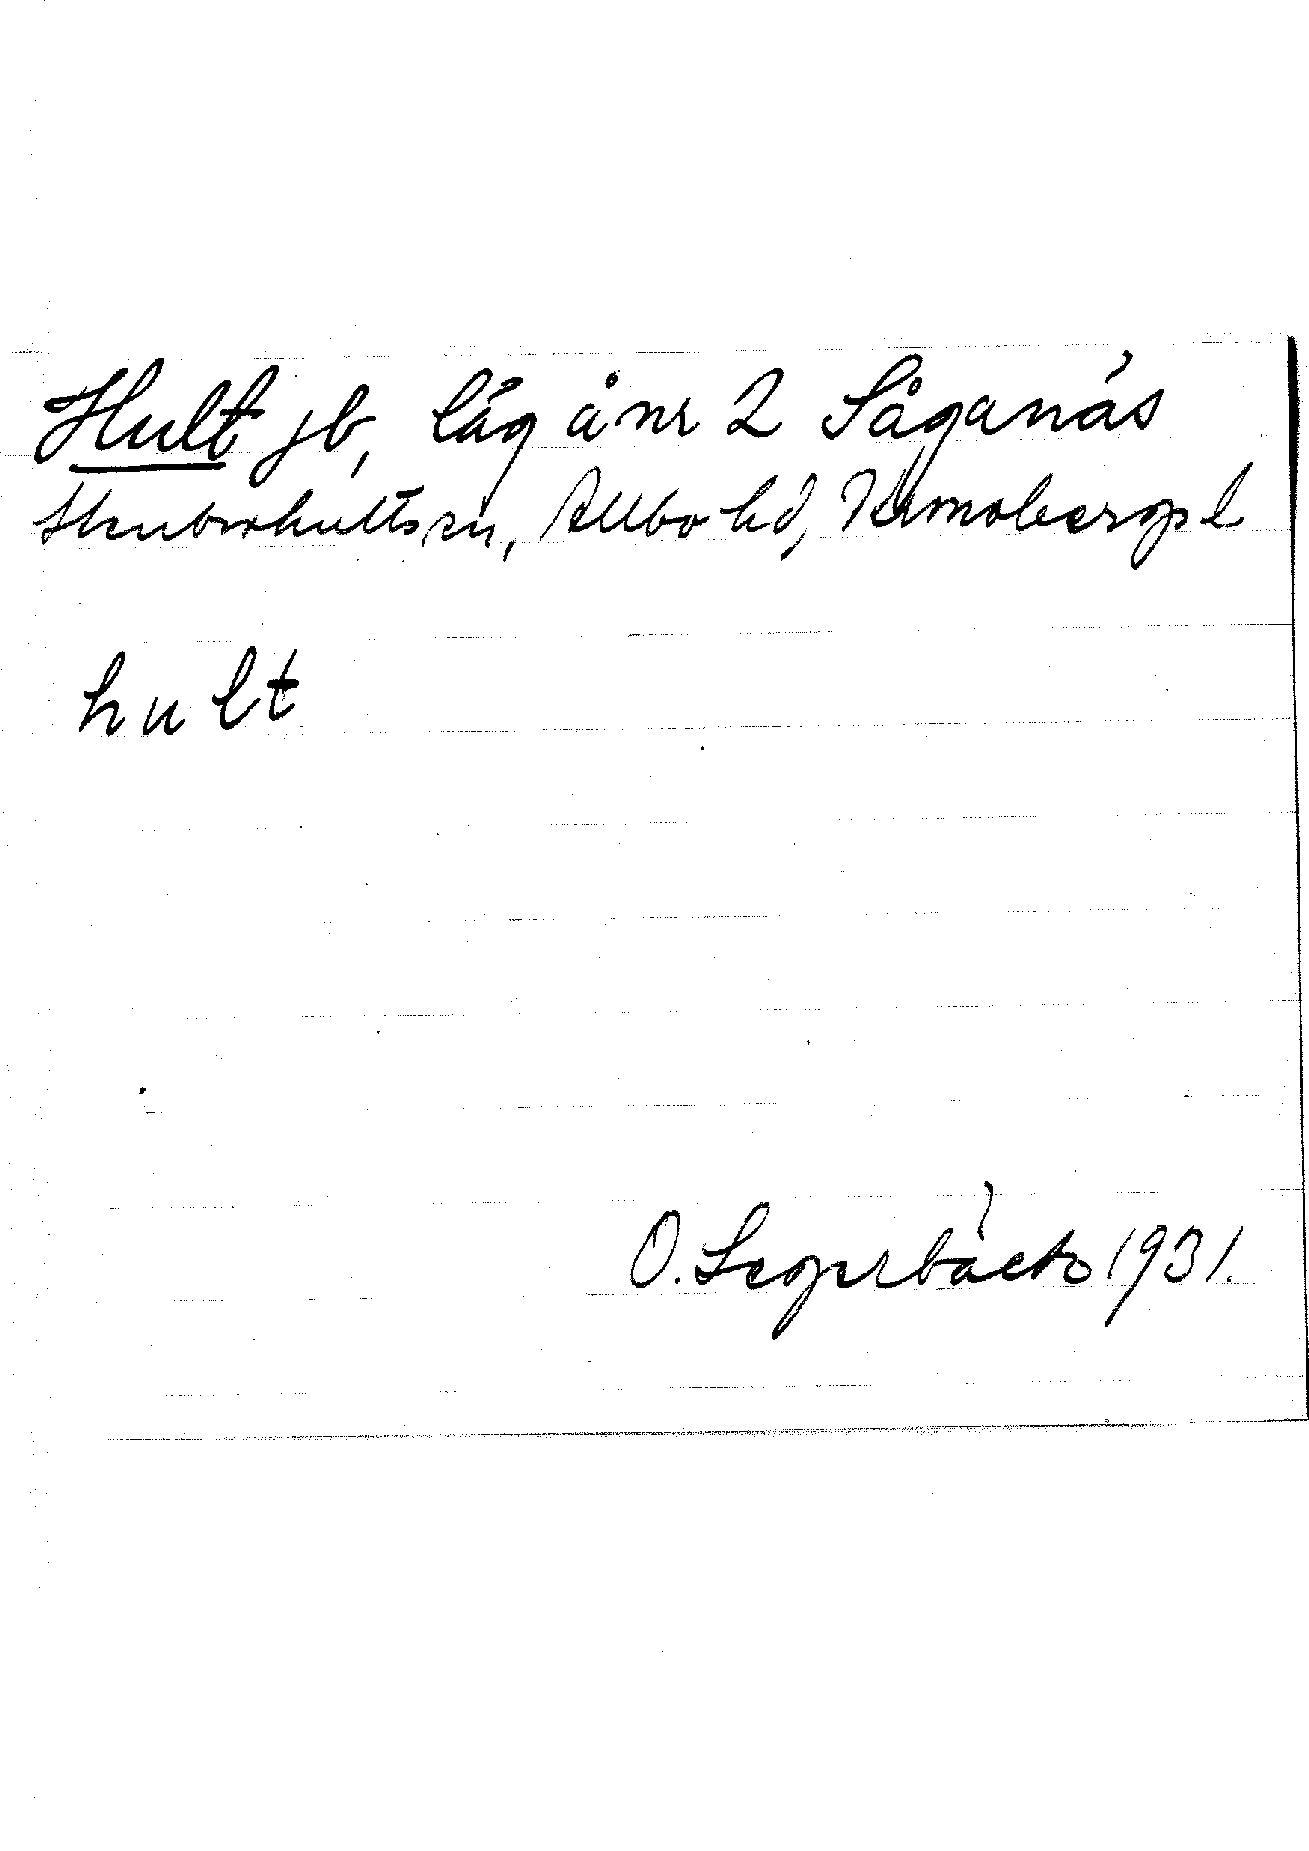 Hult jb, låg å nr 2 Såganäs
Stenbrohults sn, Allbo hd, Kronobergs l
hult
O. Segerbäck 1931.